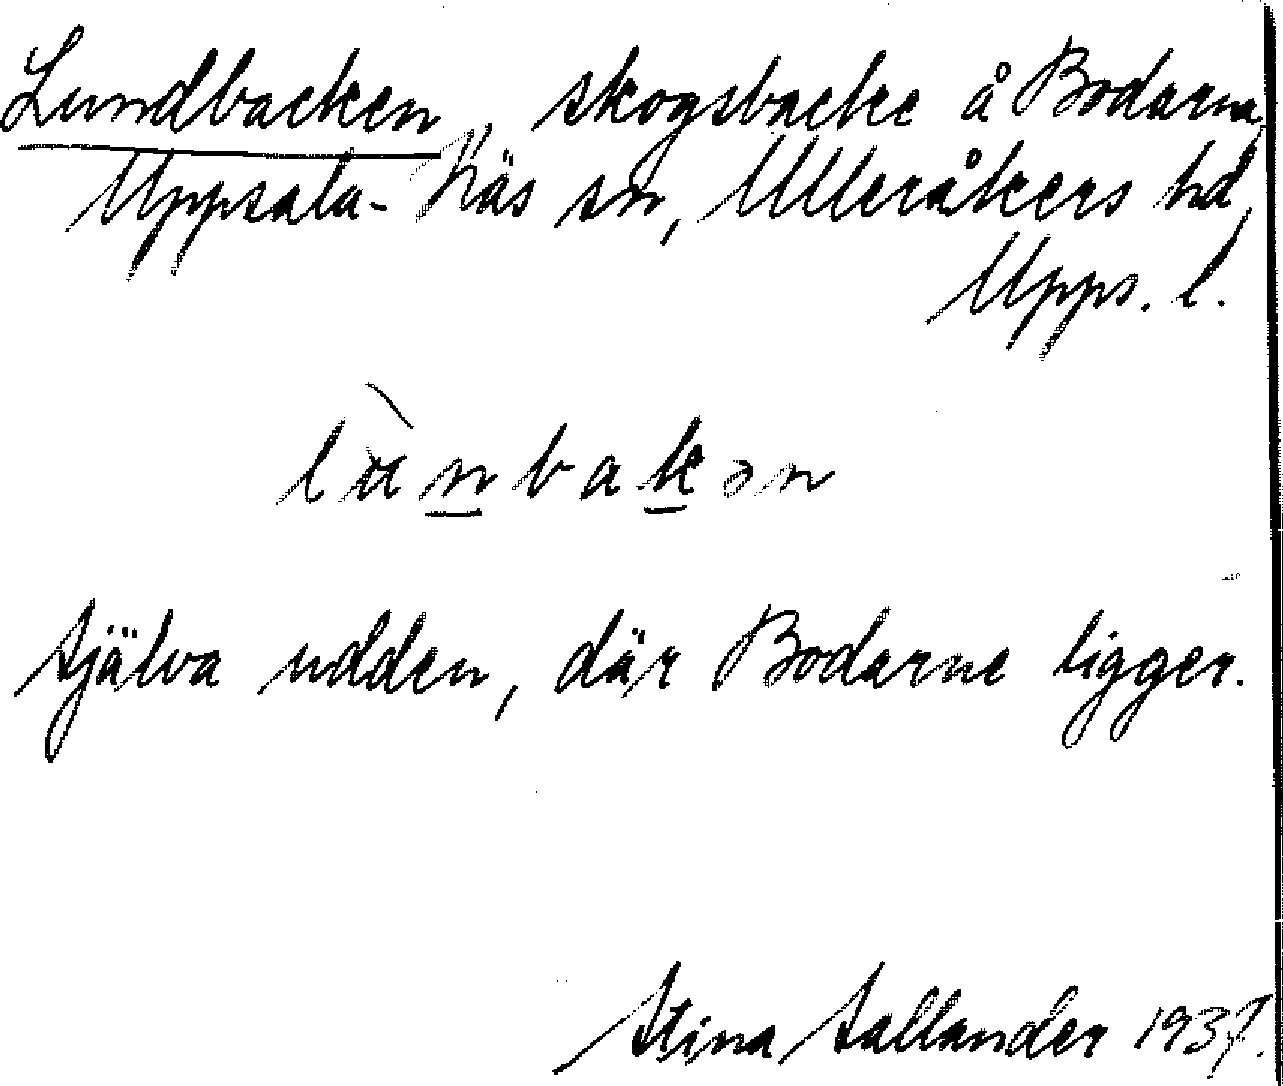 Lundbacken, skogsbacke å Bodarna,
Uppsala-Näs sn, Ulleråkers hd,
Upps. l.
lùnbakən
Själva udden, där Bodarne ligger.
Stina Sallander 1937.